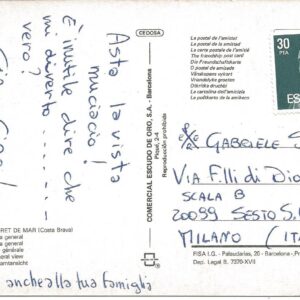 Asta la vista
muciacio!
È inutile dire che
mi diverto..........
vero?
Ciao Ciao!
anche alla tua famiglia
RET DE MAR (Costa Brava)
general
general
générale
view
amtansicht
CEDOSA
COMERCIAL ESCUDO DE ORO, S.A. - Barcelona
Reproducción prohibida
La postal de l'amistat
La postal de la amistad
La carte postale de l'amitié
The friendship post card
Die Freundschaftskarte
O postal da amizade
Vänskapens vykort
La cartolina dell'amicizia
30
PTA
ES
GABRIELE S
VIA F.lli di Dio
SCALA B
20099 SESTO S.
MILANO (IT
FISA I.G. - Palaudarias, 26 - Barcelona - Pr
Dep. Legal B. 7370-XVII